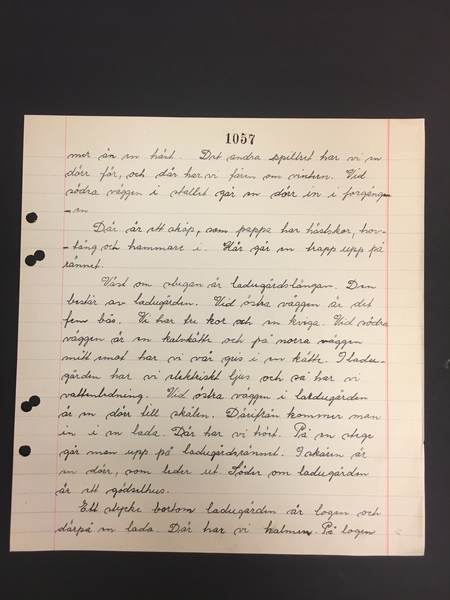 1057
mer än en häst. Det andra spiltret har vi en
dörr för, och där har vi fåren om vintern. Vid
södra väggen i stallet går en dörr in i forgång-
-en
Där är ett skåp, som pappa har hästskor, hov-
-tång och hammare i. Här går en trapp upp på
rännet.
Väst om stugan är ladugårdslängan. Den
består av ladugården. Vid östra väggen är det
fem bås. Vi har tre kor och en kviga. Vid södra
väggen är en kalvkätte och på norra väggen
mitt emot har vi vår gris i en kätte. I ladu-
gården har vi elektriskt ljus och så har vi
vattenledning. Vid östra väggen i ladugården
är en dörr till skålen. Därifrån kommer man
in i en lada. Där har vi höet. På en stege
går man upp på ladugårdsrännet. I skålen är
en dörr, som leder ut. Söder om ladugården
är ett gödselhus.
Ett stycke bortom ladugården är logen och
därpå en lada. Där har vi halmen. På logen